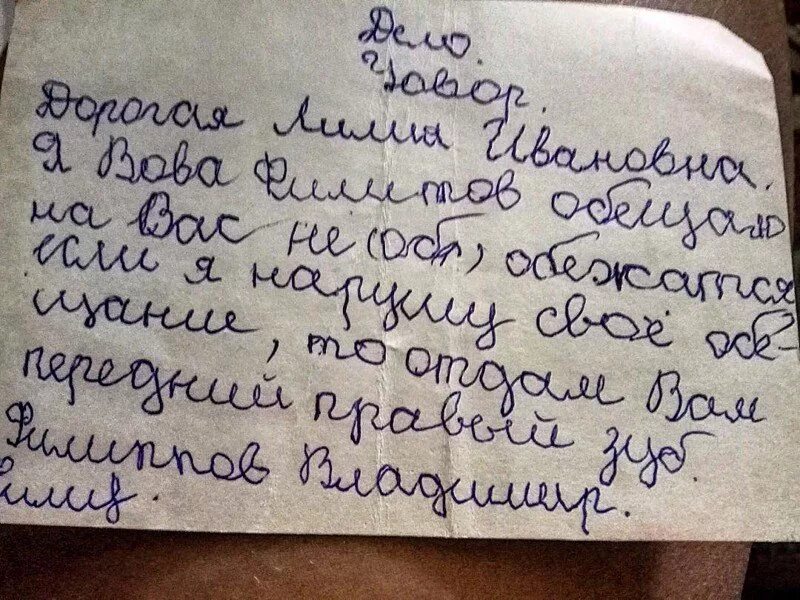 Дело.
Уовор.
Дорогая Лилия Ивановна.
Я Вова Филипов обещаю
на Вас не обежатся
если я нарушу своё обе-
щание, то отдам Вам
передний правый зуб.
Филиппов Владимир.